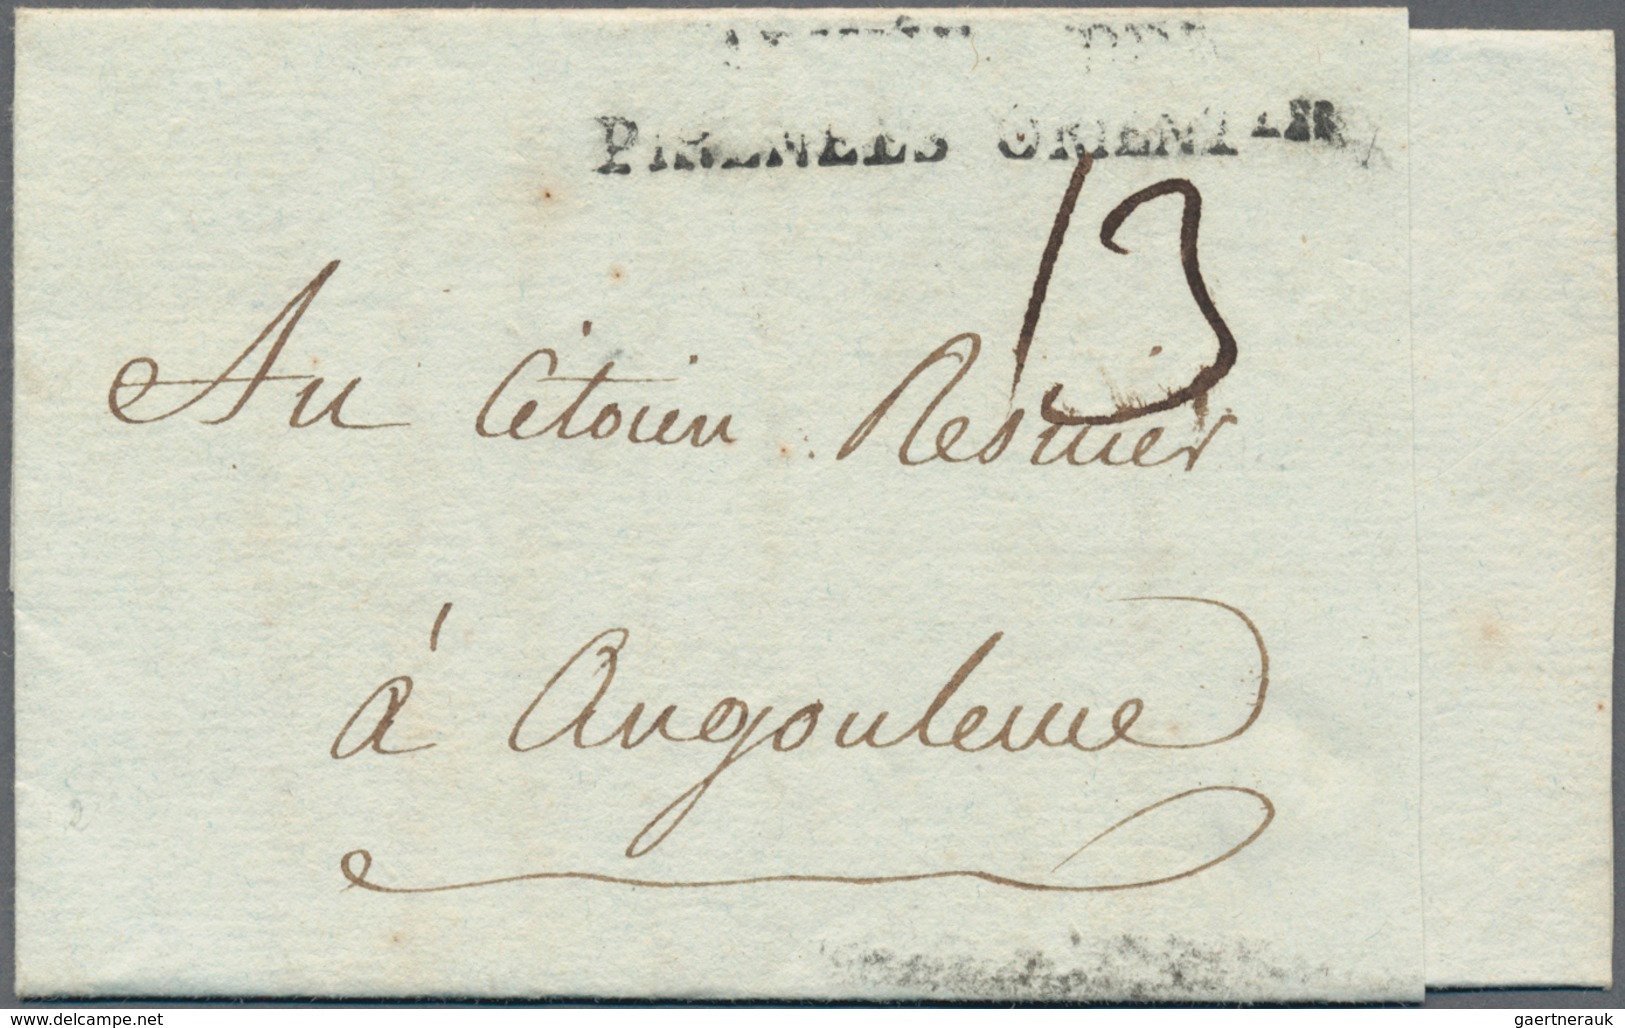 PIRENEES ORIENT^LES
13
Au Citoien Resnier
à Angouleme
2
© www.delcampe.net
gaertnerauk